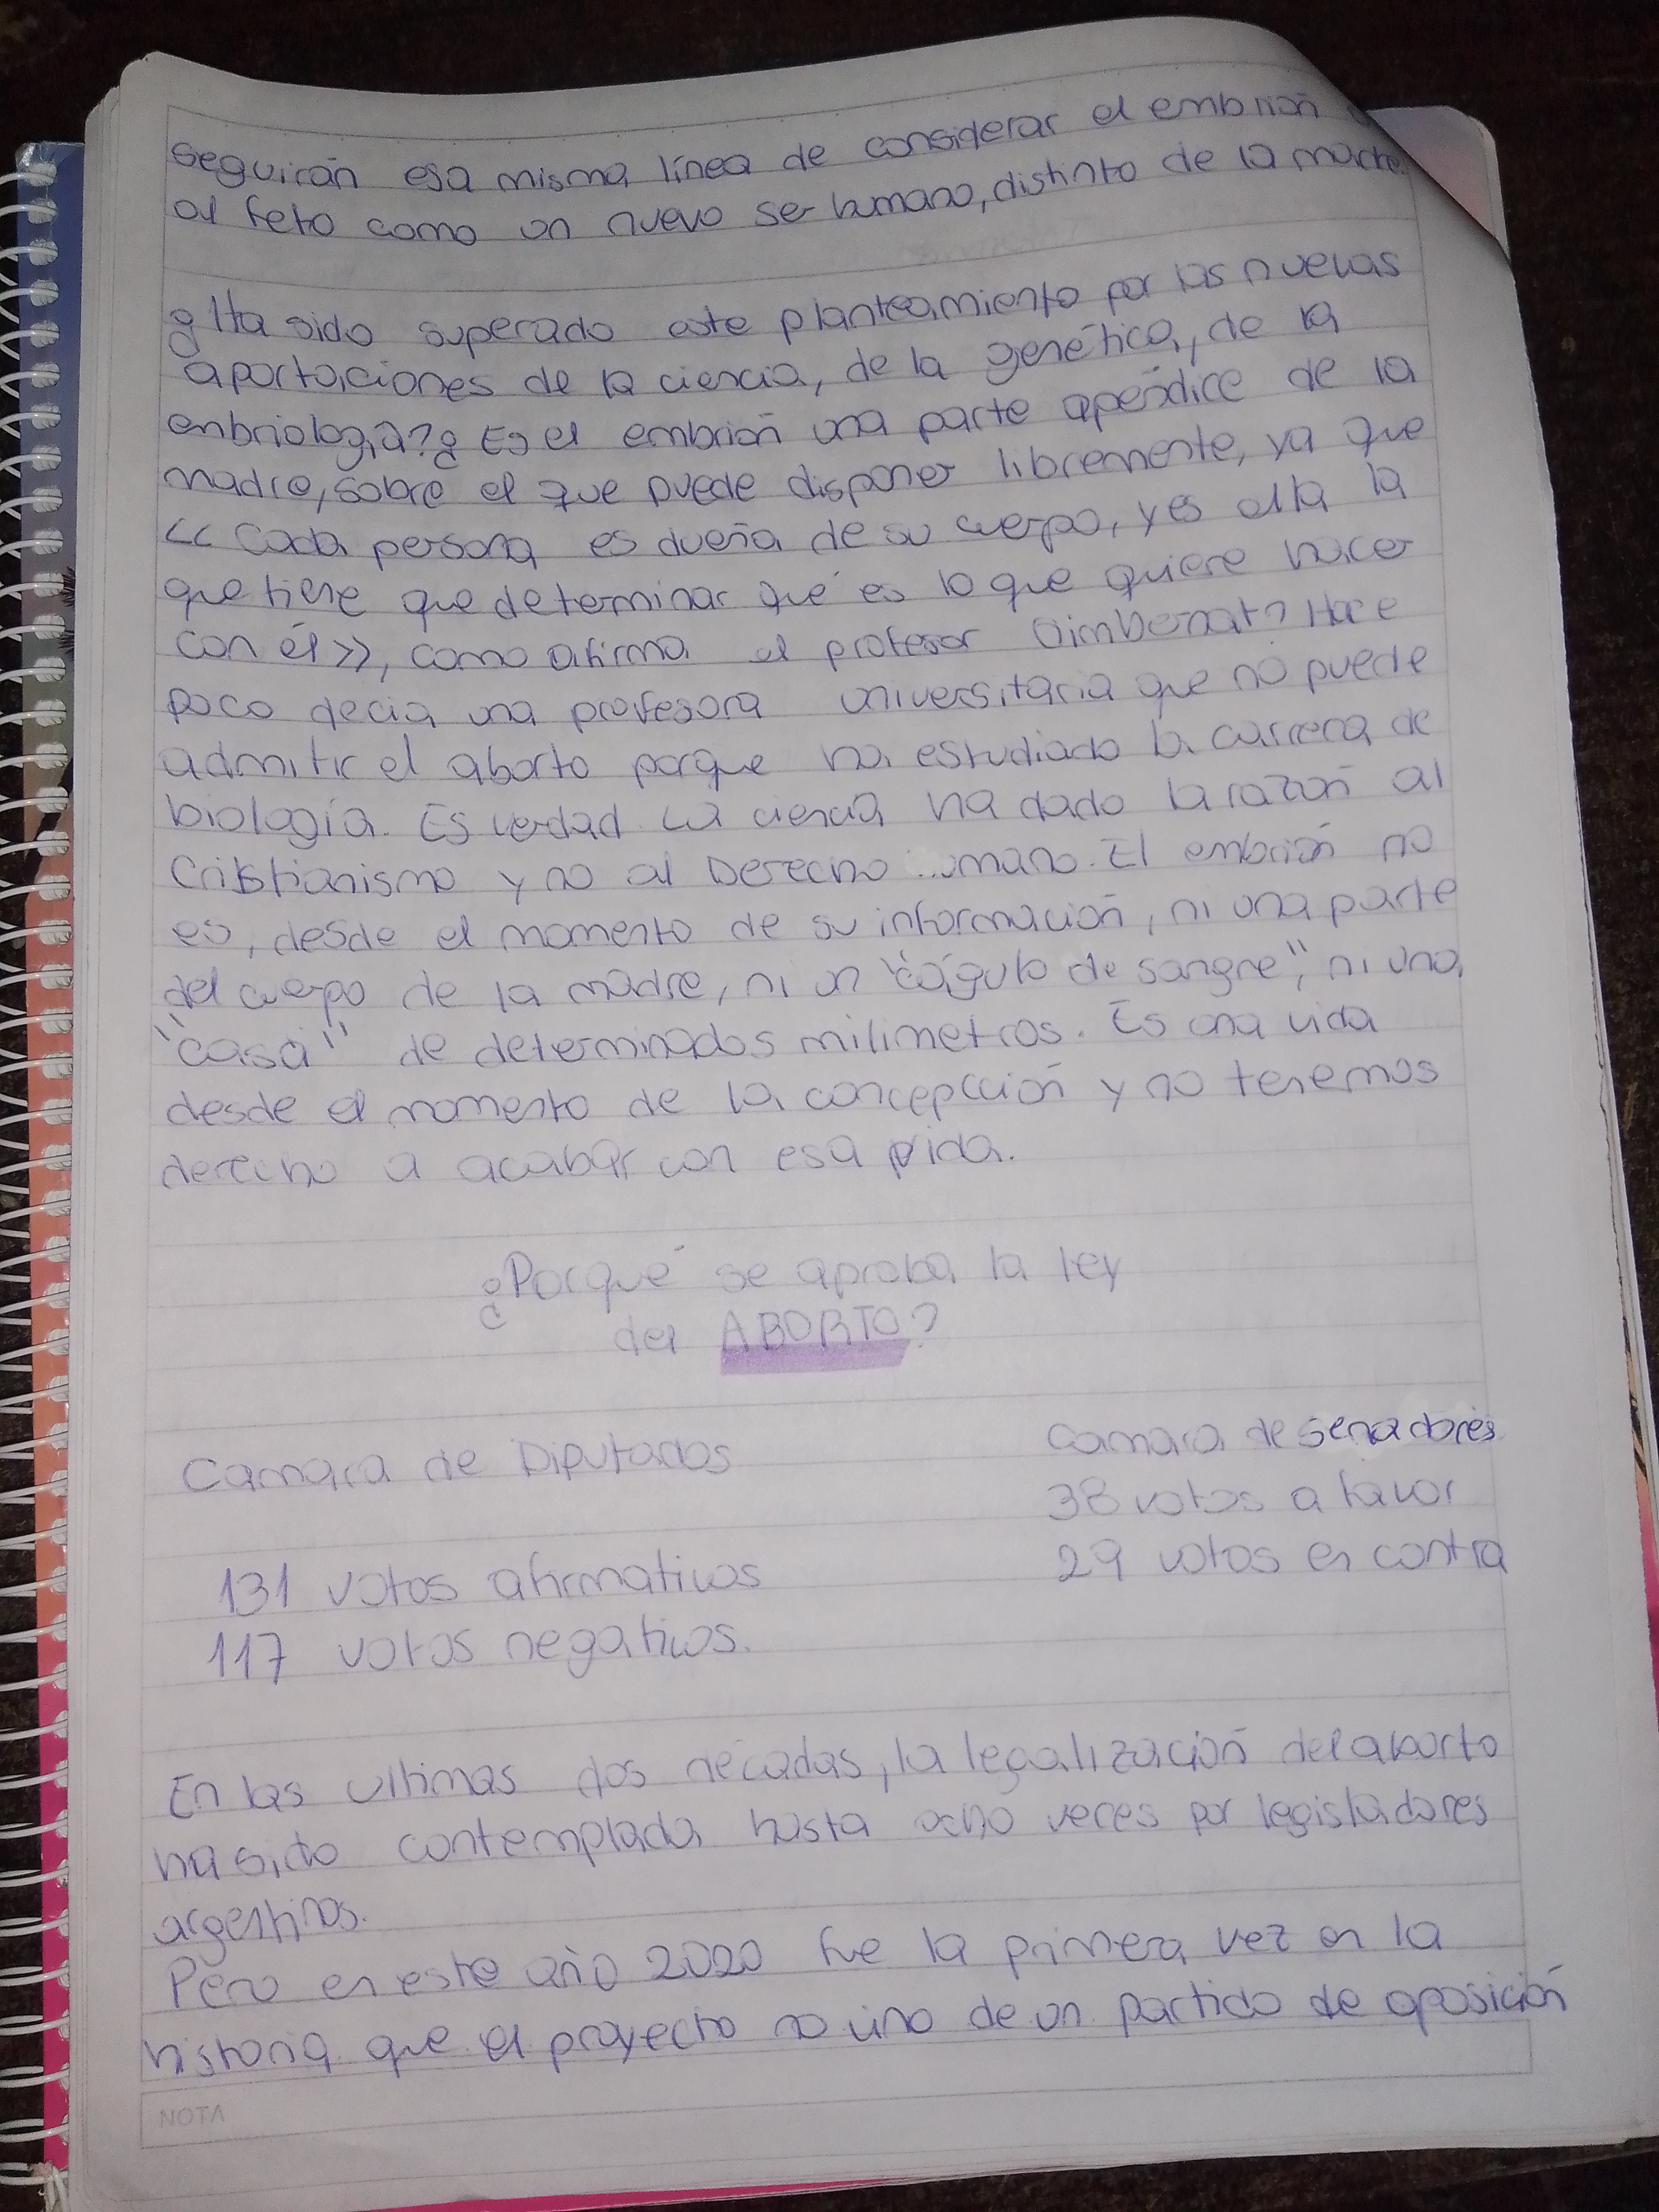 seguirán esa misma línea de considerar el embrión
al feto como un nuevo ser humano, distinto de la madre.
¿Ha sido superado este planteamiento por las nuevas
aportaciones de la ciencia, de la genética, de la
enbriología? ¿Es el embrión una parte apéndice de la
madre, sobre el que puede disponer libremente, ya que
<< Cada persona es dueña de su cuerpo, y es ella la
que tiene que determinar qué es lo que quiere hacer
con él >>, como afirma el profesor Gimbernat? Hace
poco decía una profesora universitaria que no puede
admitir el aborto porque ha estudiado la carrera de
biología. Es verdad La ciencia ha dado la razón al
Cristianismo y no al Derecho umano. El embrión no
es, desde el momento de su información, ni una parte
del cuerpo de la madre, ni un "cóagulo de sangre", ni una,
"casa" de determinados milimetros. Es una vida
desde el momento de la concepcción y no tenemos
derecho a acabar con esa vida.
¿Porqué se aproba la ley
del ABORTO?
Camara de Diputados
131 votos afirmativos
117 votos negativos.
Camara de senadores
38 votos a favor
29 votos en contra
En las ultimas dos decadas, la legalización del aborto
ha sido contemplada hasta ocho veces por legisladores
argentinos.
Pero en este año 2020 fue la primera vez en la
historia que el proyecto no vino de un partido de oposición
NOTA